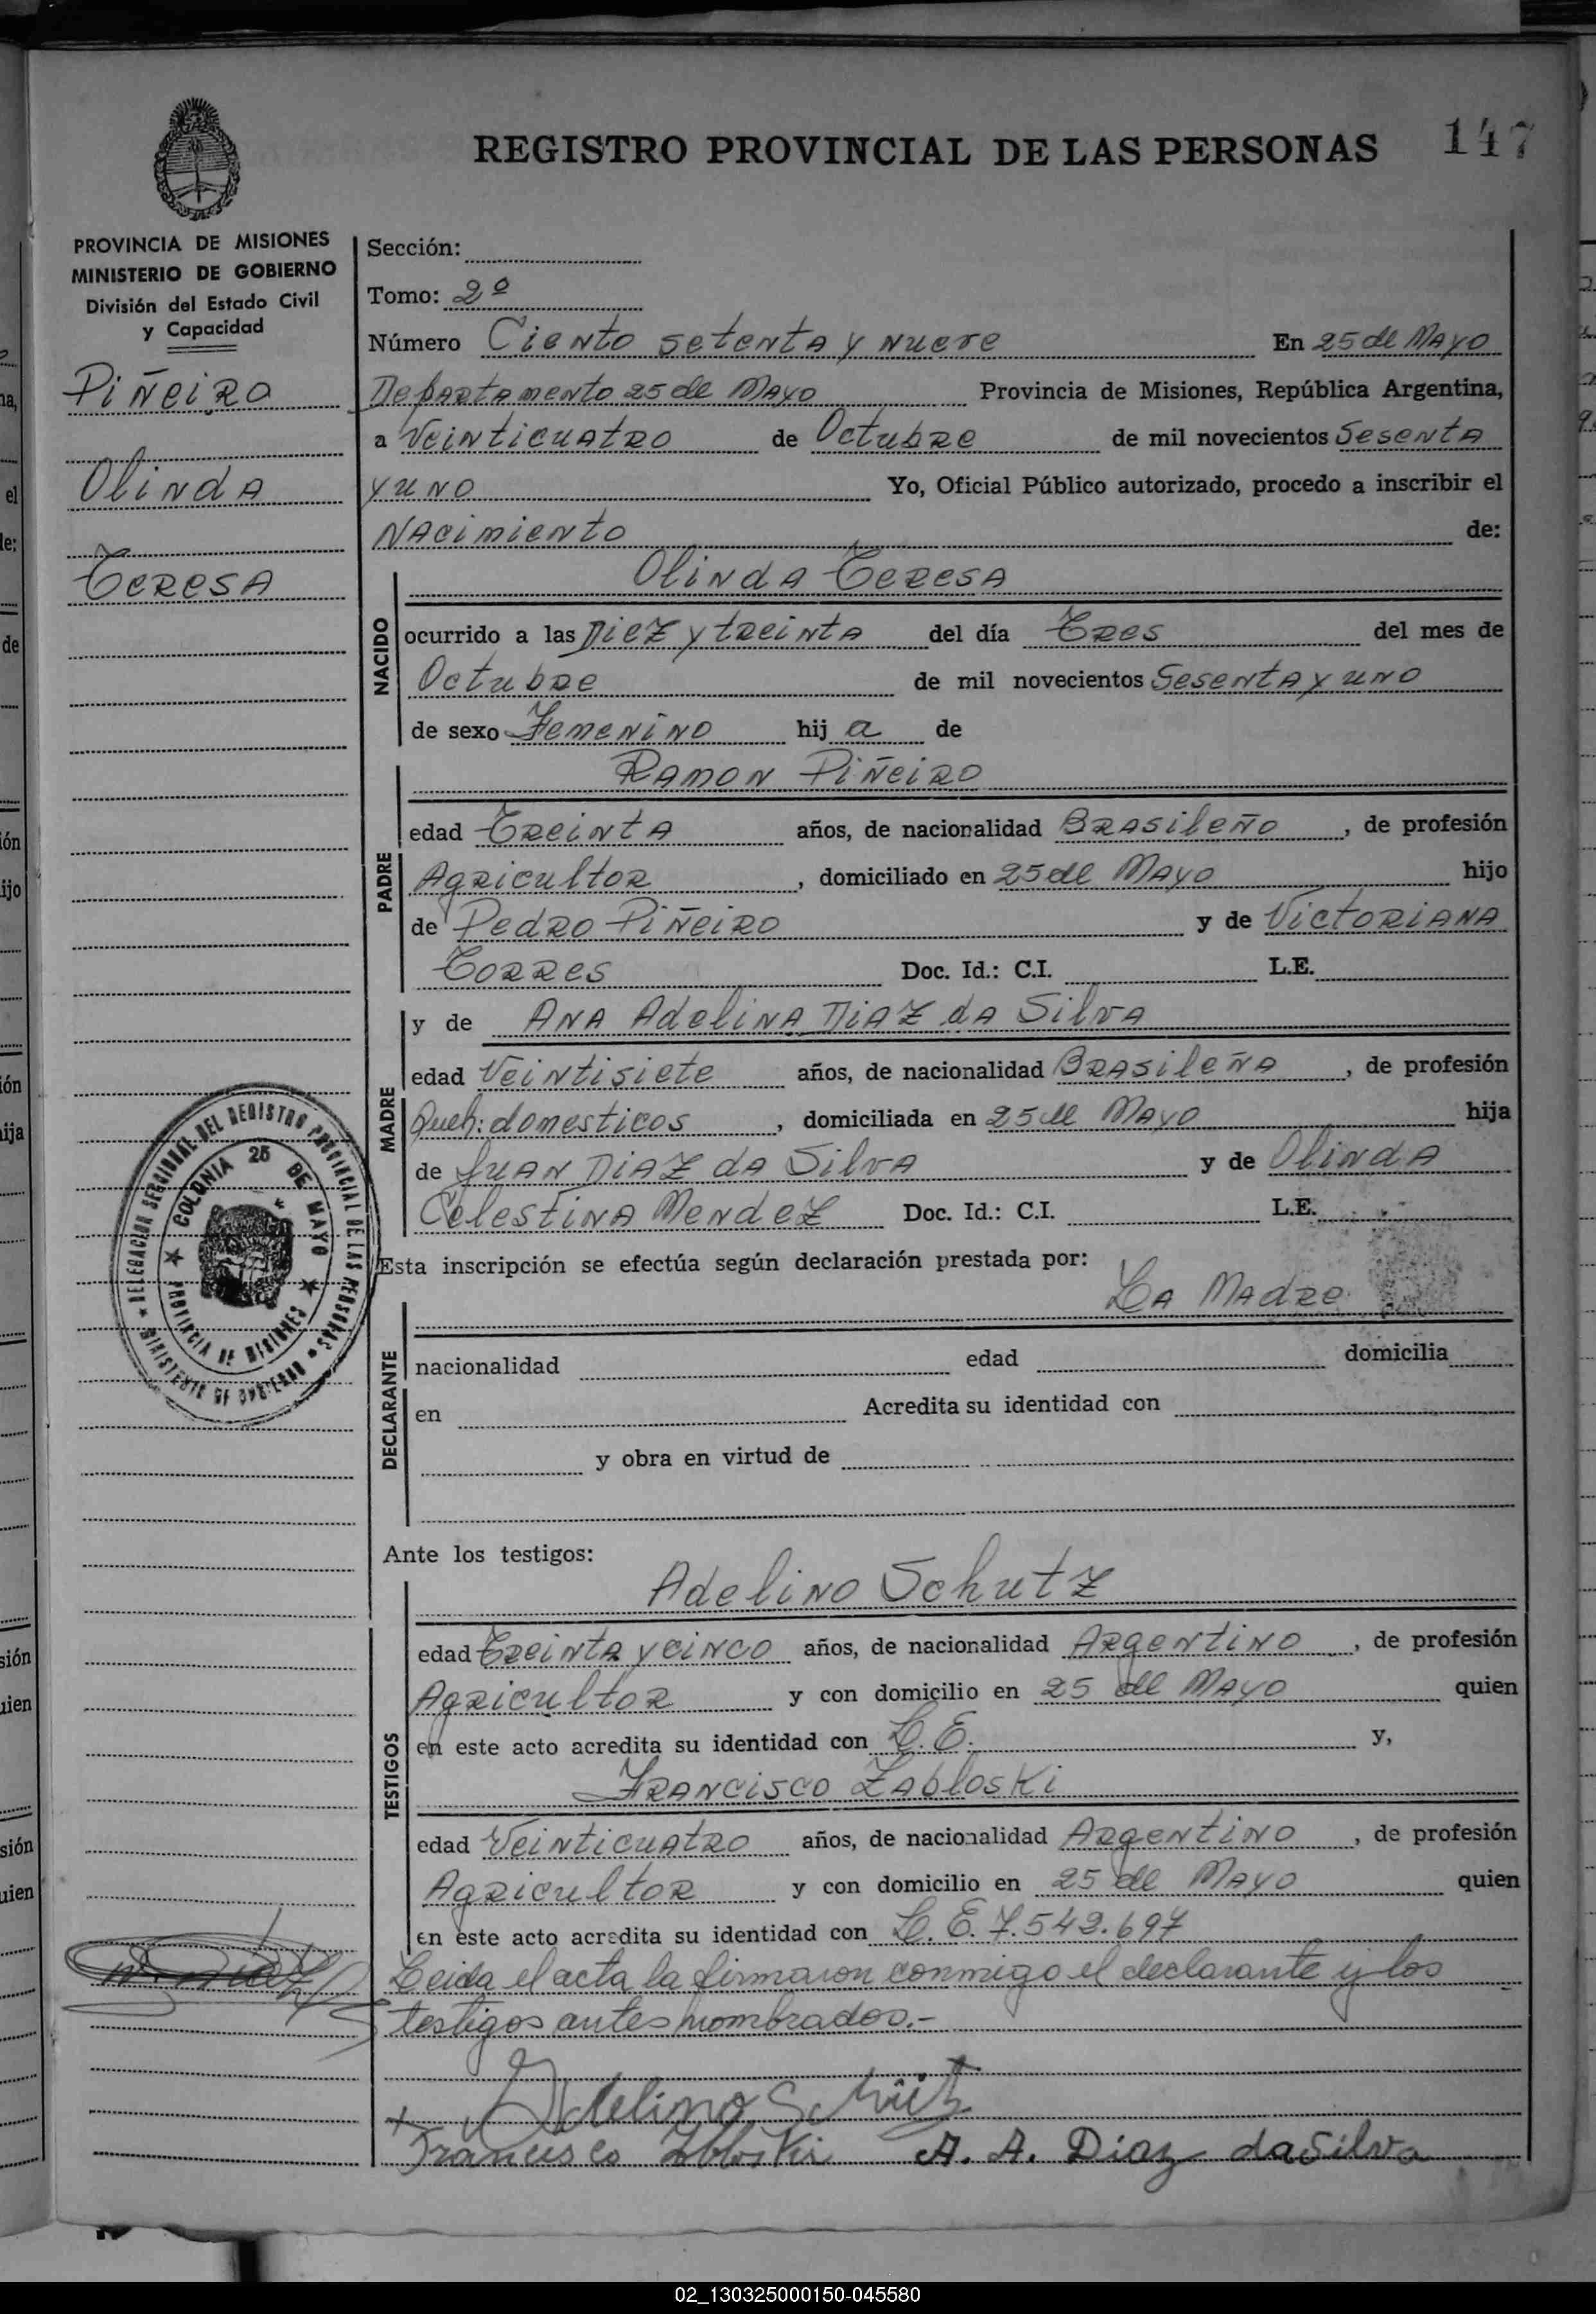 REGISTRO PROVINCIAL DE LAS PERSONAS 147
PROVINCIA DE MISIONES
MINISTERIO DE GOBIERNO
División del Estado Civil
y Capacidad
Piñeiro
Olinda
Teresa
Sección:
Tomo: 2º
Número Ciento setenta y nueve En 25 de Mayo
Departamento 25 de Mayo Provincia de Misiones, República Argentina,
a Veinticuatro de Octubre de mil novecientos Sesenta
y uno Yo, Oficial Público autorizado, procedo a inscribir el
Nacimiento de:
NACIDO
Olinda Teresa
ocurrido a las Diez y treinta del día Tres del mes de
Octubre de mil novecientos Sesenta y uno
de sexo Femenino hij a de
PADRE
Ramon Piñeiro
edad Treinta años, de nacionalidad Brasileño, de profesión
Agricultor, domiciliado en 25 de Mayo hijo
de Pedro Piñeiro y de Victoriana
Torres Doc. Id.: C.I. L.E.
MADRE
y de Ana Adelina Diaz da Silva
edad Veintisiete años, de nacionalidad Brasileña, de profesión
Queh: domesticos, domiciliada en 25 de Mayo hija
de Juan Diaz da Silva y de Olinda
Celestina Mendez Doc. Id.: C.I. L.E.
Esta inscripción se efectúa según declaración prestada por:
La Madre
DECLARANTE
nacionalidad edad domicilia
en Acredita su identidad con
y obra en virtud de
DELEGACION SECCIONAL DEL REGISTRO PROVINCIAL DE LAS PERSONAS
COLONIA 25 DE MAYO
PROVINCIA DE MISIONES
Ante los testigos:
TESTIGOS
Adelino Schutz
edad Treinta y cinco años, de nacionalidad Argentino, de profesión
Agricultor y con domicilio en 25 de Mayo quien
en este acto acredita su identidad con L.E. y,
Francisco Zabloski
edad Veinticuatro años, de nacionalidad Argentino, de profesión
Agricultor y con domicilio en 25 de Mayo quien
en este acto acredita su identidad con L.E. 7.542.697
Leida el acta la firmaron conmigo el declarante y los
testigos antes nombrados.-
Adelino Schütz
Francisco A. A. Diaz da Silva
02_130325000150-045580